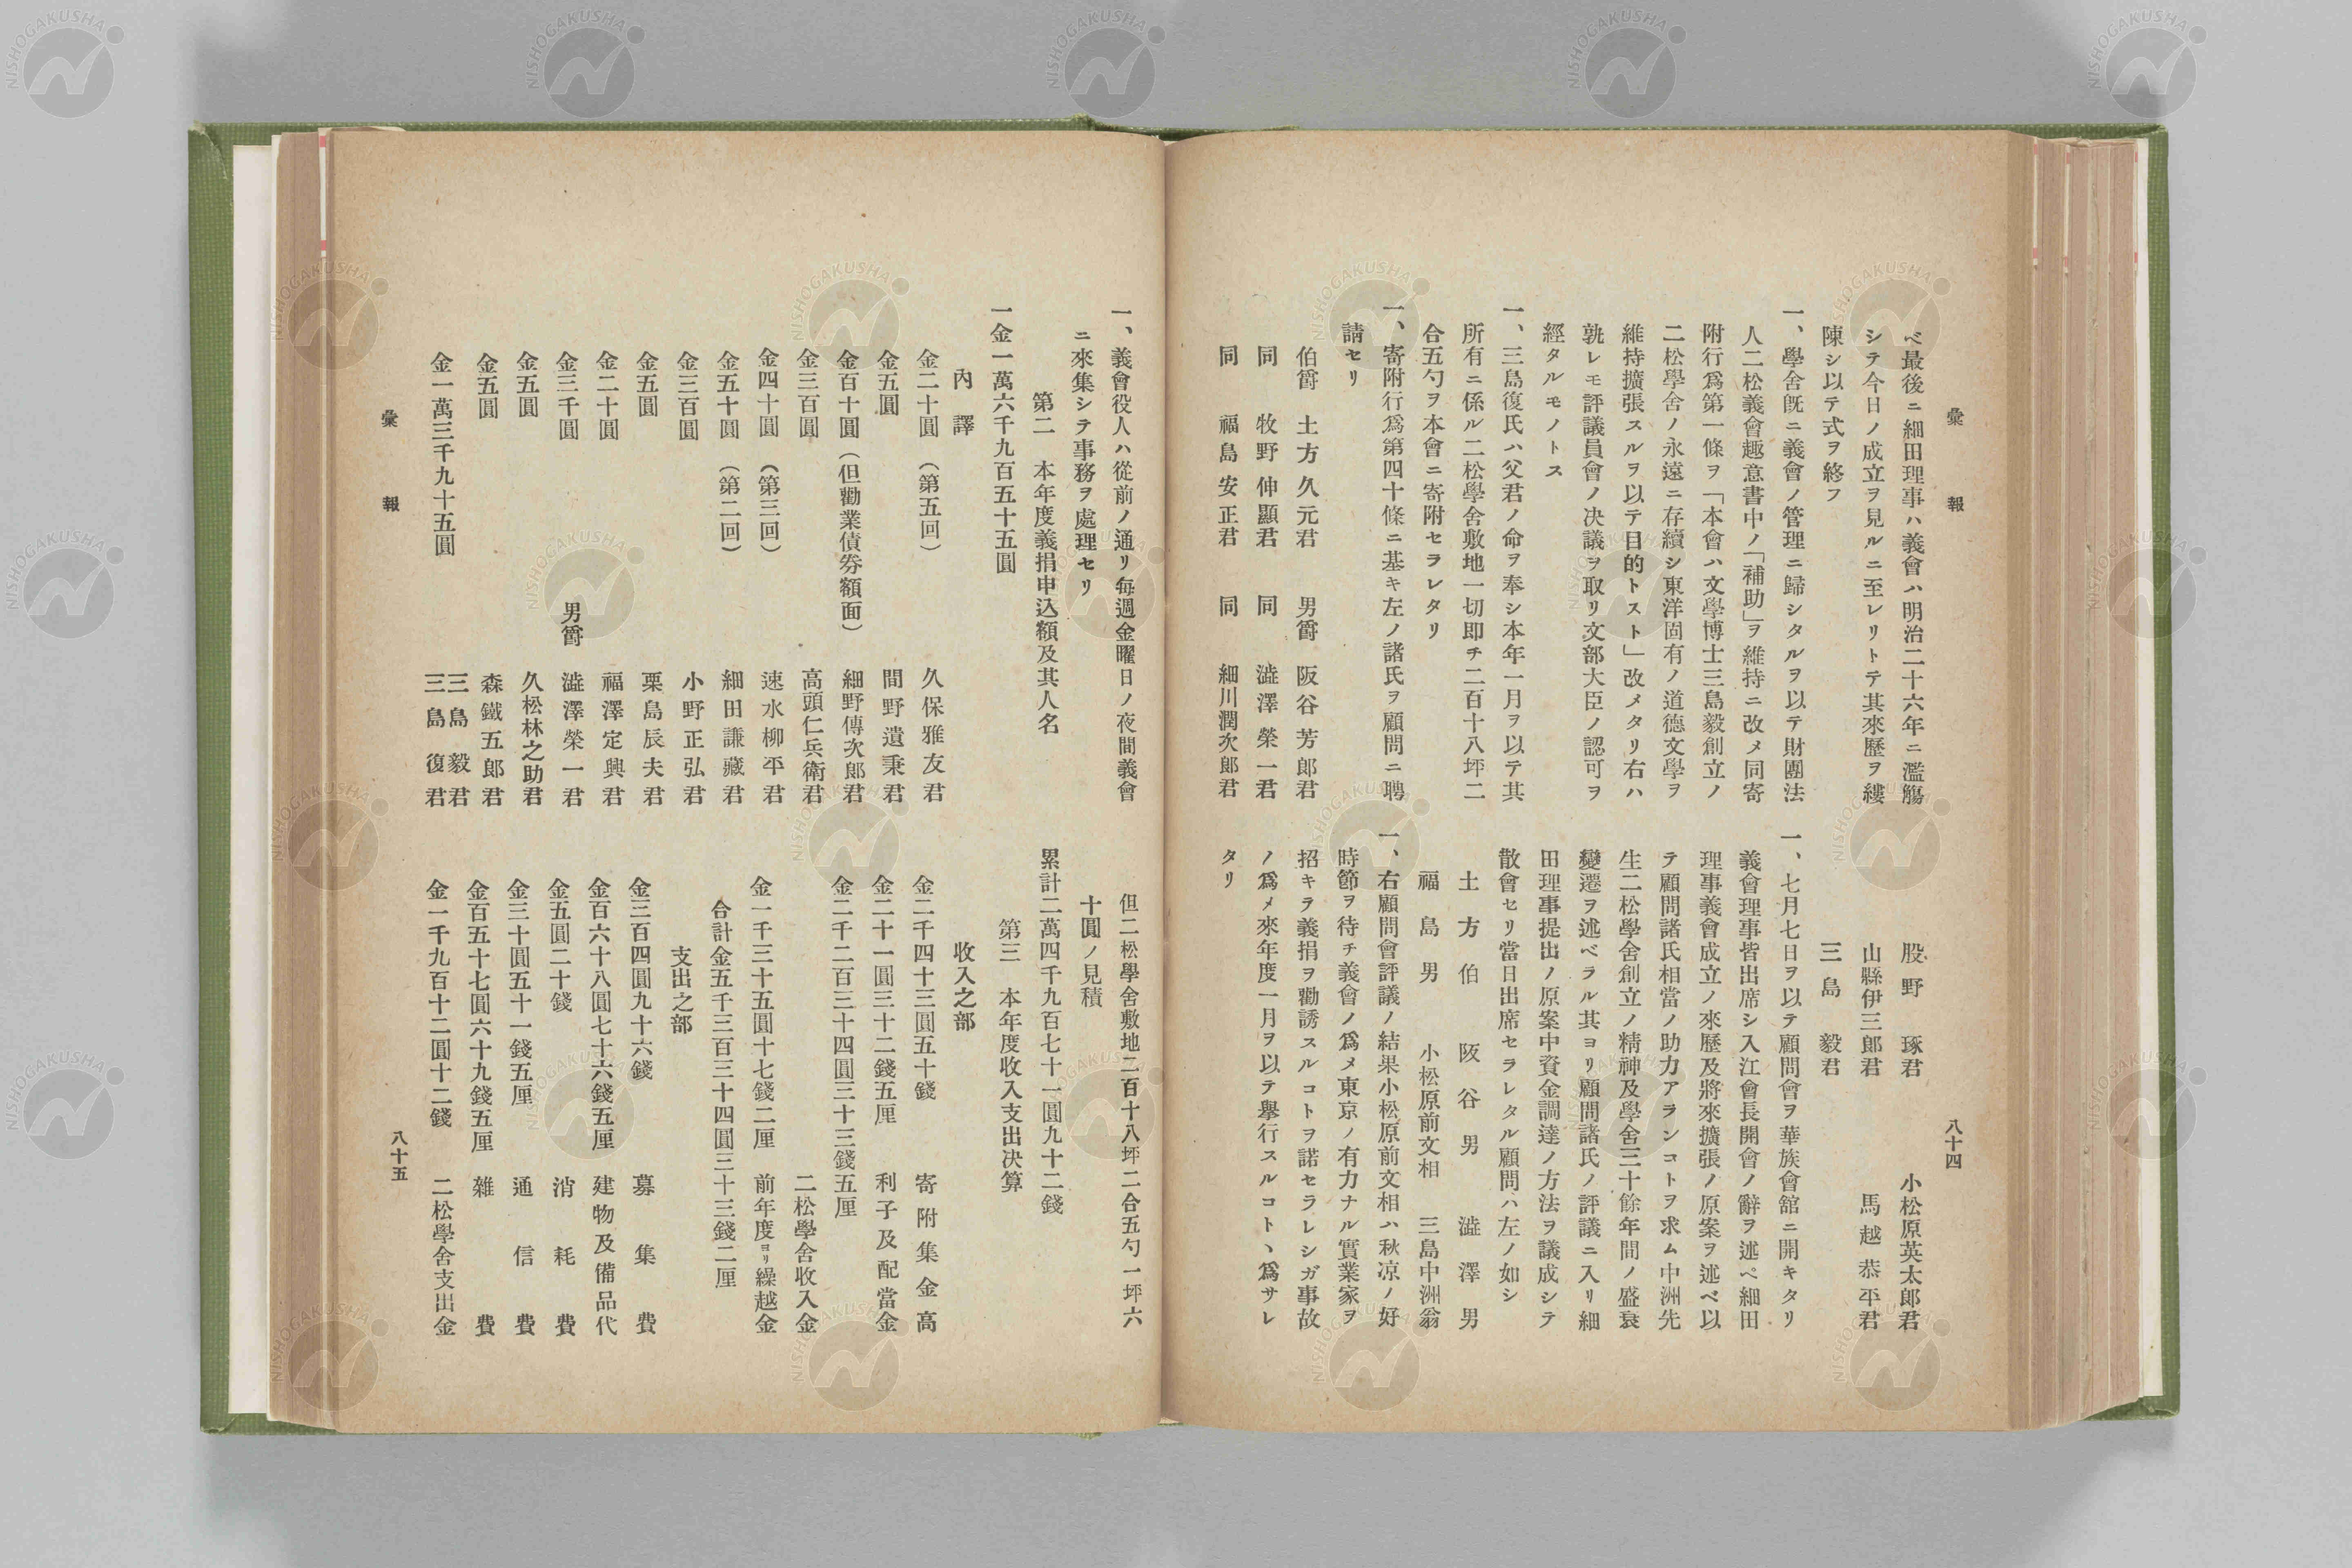 彙報
八十四
ベ最後ニ細田理事ハ義會ハ明治二十六年ニ濫觴
シテ今日ノ成立ヲ見ルニ至レリトテ其來歷ヲ縷
陳シ以テ式ヲ終フ
一、學舍既ニ義會ノ管理ニ歸シタルヲ以テ財團法
人二松義會趣意書中ノ「補助」ヲ維持ニ改メ同寄
附行爲第一條ヲ「本會ハ文學博士三島毅創立ノ
二松學舍ノ永遠ニ存續シ東洋固有ノ道德文學ヲ
維持擴張スルヲ以テ目的トスト」改メタリ右ハ
孰レモ評議員會ノ決議ヲ取リ文部大臣ノ認可ヲ
經タルモノトス
一、三島復氏ハ父君ノ命ヲ奉シ本年一月ヲ以テ其
所有ニ係ル二松學舍敷地一切即チ二百十八坪二
合五勺ヲ本會ニ寄附セラレタリ
一、寄附行爲第四十條ニ基キ左ノ諸氏ヲ顧問ニ聘
請セリ
伯爵 土方久元君 男爵 阪谷芳郎君
同 牧野伸顯君 同 澁澤榮一君
同 福島安正君 同 細川潤次郎君
股野琢君 小松原英太郎君
山縣伊三郎君 馬越恭平君
三島毅君
一、七月七日ヲ以テ顧問會ヲ華族會舘ニ開キタリ
義會理事皆出席シ入江會長開會ノ辭ヲ述ベ細田
理事義會成立ノ來歷及將來擴張ノ原案ヲ述ベ以
テ顧問諸氏相當ノ助力アランコトヲ求ム中洲先
生二松學舍創立ノ精神及學舍三十餘年間ノ盛衰
變遷ヲ述ベラル其ヨリ顧問諸氏ノ評議ニ入リ細
田理事提出ノ原案中資金調達ノ方法ヲ議成シテ
散會セリ當日出席セラレタル顧問ハ左ノ如シ
土方伯 阪谷男 澁澤男
福島男 小松原前文相 三島中洲翁
一、右顧問會評議ノ結果小松原前文相ハ秋凉ノ好
時節ヲ待チ義會ノ爲メ東京ノ有力ナル實業家ヲ
招キテ義捐ヲ勸誘スルコトヲ諾セラレシガ事故
ノ爲メ來年度一月ヲ以テ擧行スルコトヽ爲サレ
タリ
一、義會役人ハ從前ノ通リ每週金曜日ノ夜間義會
ニ來集シテ事務ヲ處理セリ
第二 本年度義捐申込額及其人名
一金一萬六千九百五十五圓
內譯
金二十圓(第五回) 久保雅友君
金五圓 間野遺秉君
金百十圓(但勸業債券額面) 細野傳次郎君
金三百圓 高頭仁兵衛君
金四十圓(第三回) 速水柳平君
金五十圓(第二回) 細田謙藏君
金三百圓 小野正弘君
金五圓 栗島辰夫君
金二十圓 福澤定興君
金三千圓 男爵 澁澤榮一君
金五圓 久松林之助君
金五圓 森鐵五郎君
金一萬三千九十五圓 三島毅君
三島復君
但二松學舍敷地二百十八坪二合五勺一坪六
十圓ノ見積
累計二萬四千九百七十一圓九十二錢
第三 本年度收入支出決算
收入之部
金二千四十三圓五十錢 寄附集金高
金二十一圓三十二錢五厘 利子及配當金
金二千二百三十四圓三十三錢五厘
二松學舍收入金
金一千三十五圓十七錢二厘 前年度ヨリ繰越金
合計金五千三百三十四圓三十三錢二厘
支出之部
金三百四圓九十六錢 募集費
金百六十八圓七十六錢五厘 建物及備品代
金五圓二十錢 消耗費
金三十圓五十一錢五厘 通信費
金百五十七圓六十九錢五厘 雜費
金一千九百十二圓十二錢 二松學舍支出金
彙報
八十五